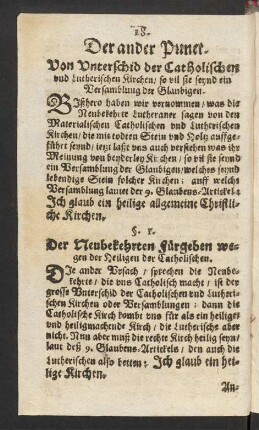 18.
Der ander Punct.
Von Vnterschid der Catholischen
vnd Lutherischen Kirchen / so vil sie seynd ein
Versamblung der Glaubigen.
BIßhero haben wir vernommen / was die
Neubekehrte Lutheraner sagen von den
Materialischen Catholischen vnd Lutherischen
Kirchen / die mit todten Stein vnd Holtz auffge-
führt seynd / jetzt laßt vns auch verstehen was ihr
Meinung von beyderley Kirchen / so vil sie seynd
ein Versamblung der Glaubigen / welches seynd
lebendige Stein solcher Kirchen: auff welche
Versamblung lautet der 9. Glaubens-Artikel:
Ich glaub ein heilige allgemeine Christli-
che Kirchen.
§. 1.
Der Neubekehrten Fürgeben we-
gen der Heiligen der Catholischen.
DIe ander Vrsach / sprechen die Neube-
kehrte / die vns Catholisch macht / ist der
grosse Vnterschid der Catholischen vnd Lutheri-
schen Kirchen oder Versamblungen: dann die
Catholische Kirch kombt vns für als ein heilige
vnd heiligmachende Kirch / die Lutherische aber
nicht. Nun aber muß die rechte Kirch heilig seyn /
laut deß 9. Glaubens-Artikels / den auch die
Lutherischen also betten: Ich glaub ein hei-
lige Kirchen.
An-